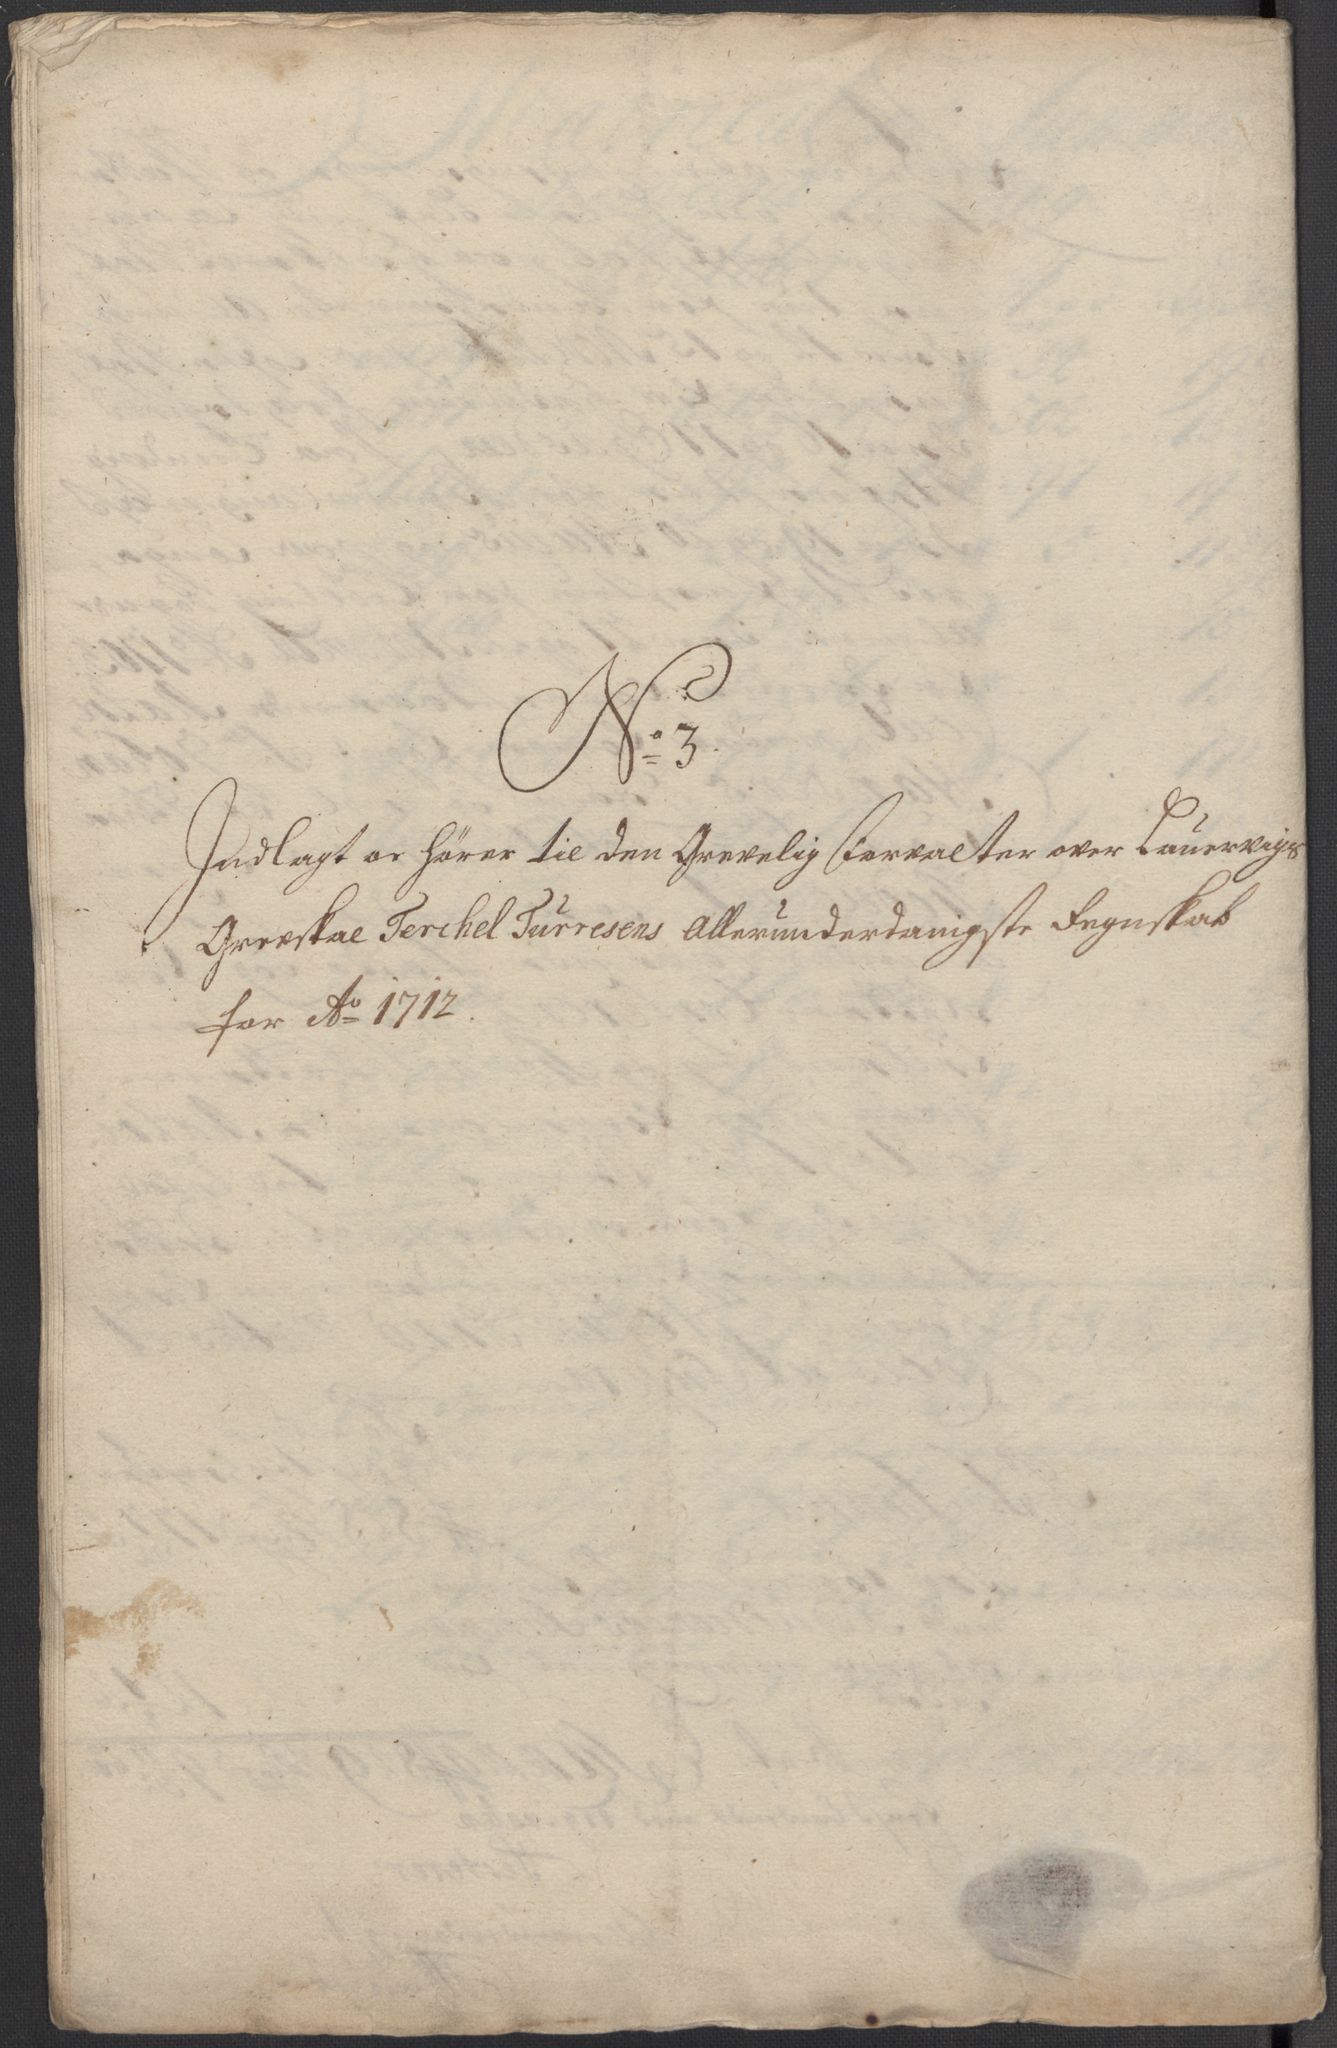 No 3.
Indlagt oc hörer til den Grevelig Forvalter over Laurvigs
Grevskab Terchel Turresens Allerunderdanigste Regnskab
for Ao 1712.